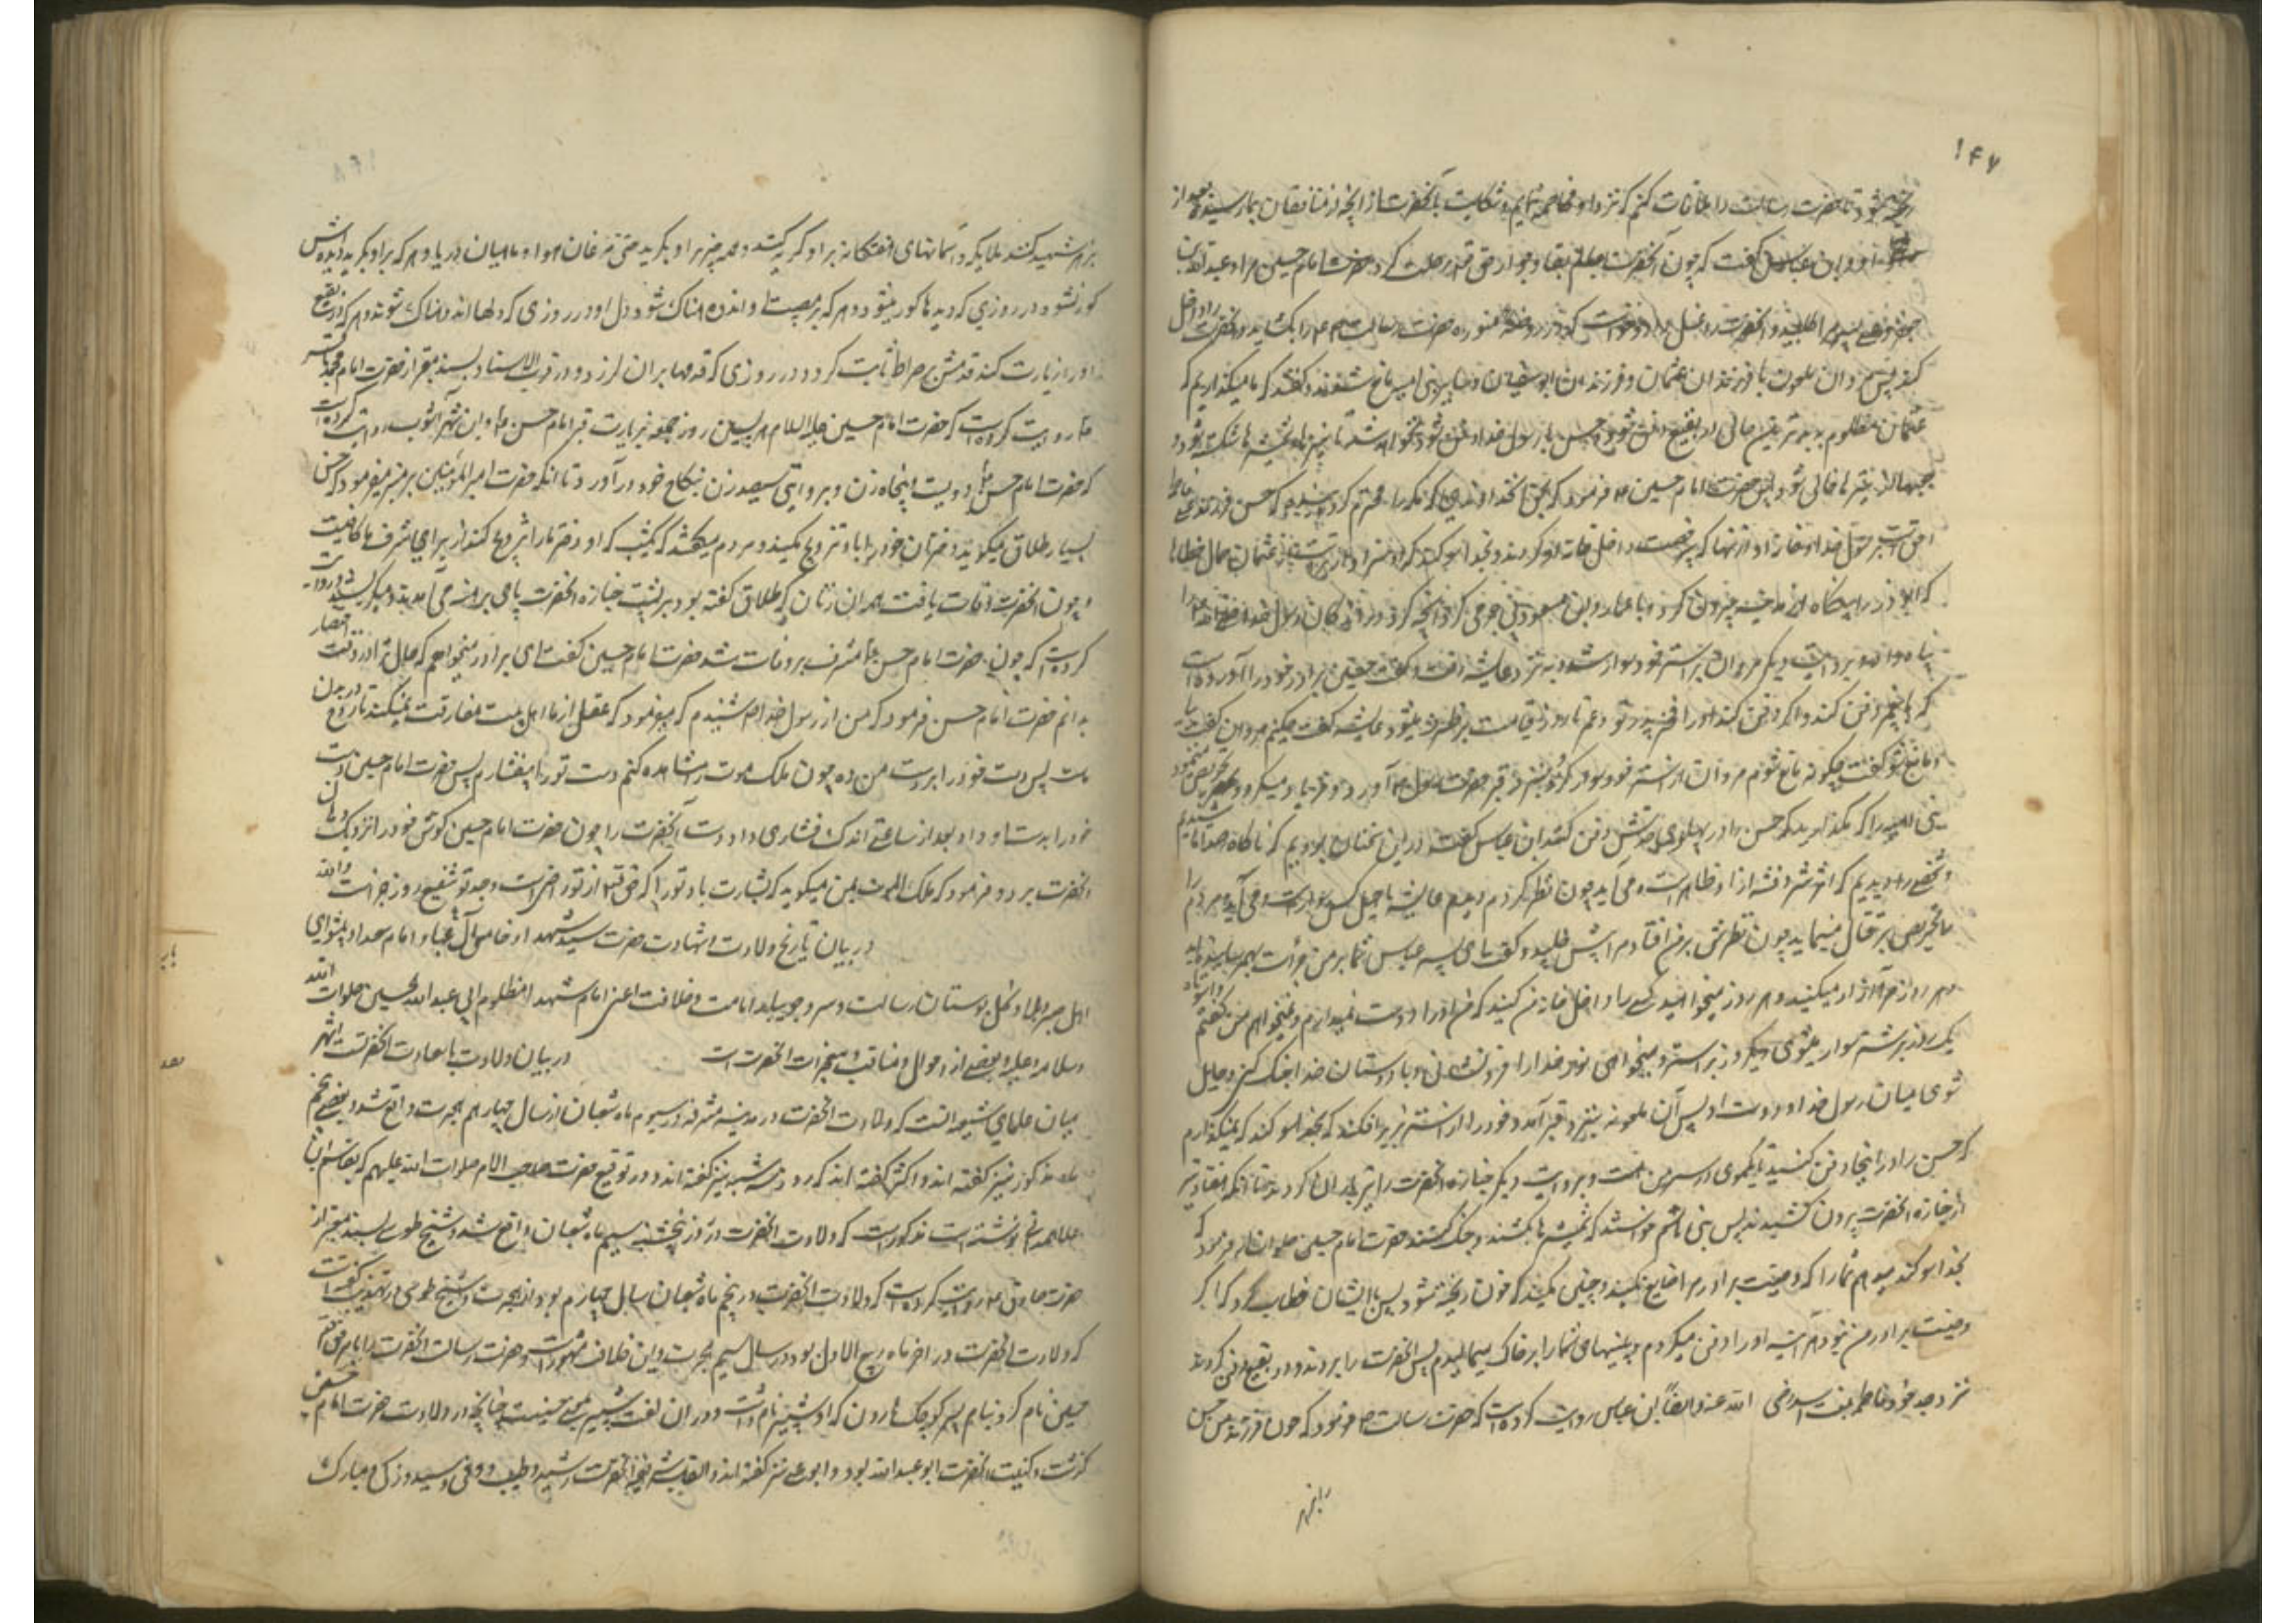 ۱۴۷
شود تا حضرت رسالت را ملاقات کنم که نزد او مخاصمه نمایم و شکایت بآنحضرت از آنچه از منافقان بما رسید بعد از
ابن عباس گفت که چون آنحضرت بعالم بقا و جوار حق تعالی رحلت کرد حضرت امام حسین مرا و عبدالله بن
جعفر و علی پسر مرا طلبید و آنحضرت را غسل داد و خواست که در روضه منوره حضرت رسالت را بکشاید و آنحضرت را داخل
کند پس مروان ملعون با فرزندان عثمان و فرزندان ابوسفیان و سایر بنی امیه مانع شدند و گفتند که ما نمیگذاریم که
عثمان مظلوم به بدترین جائی در بقیع دفن شود و حسن با رسول خدا دفن شود نخواهد شد تا نیزه ها و شمشیرها شکسته شود و
جعبها از تیر خالی شود پس حضرت امام حسین فرمود که بحق آنخداوندی که مکه را محترم کردانیده که حسن فرزند علی و فاطمه
احق است برسول خدا و خانه او از آنها که بی رخصت داخل خانه او کردند و بخدا سوکند که او سزاوارتر است از عثمان حمال خطاها
که ابوذر را از مدینه بیرون کرد و با عمار و ابن مسعود کرد آنچه کرد
پناه داد و بروایت دیگر مروان بر استر خود سوار شد و به نزد عایشه رفت و گفت حسین برادر خود را آورده است
که با پیغمبر دفن کند و اگر دفن کند او را فخر پدر تو و عمر تا روز قیامت برطرف میشود عایشه گفت چکنم مروان گفت بیا
و مانع شو گفت چگونه مانع شوم مروان از استر خود بزیر آمد و او را سوار کرد و بنزد قبر حضرت رسول آورد و فریاد میکرد و تحریص مینمود
بنی امیه را که مگذارید که حسن را در پهلوی جدش دفن کنند ابن عباس گفت در این سخنان بودیم که ناگاه صداها شنیدیم
و شخصی را دیدیم که اثر شر و فتنه از او ظاهر است و می آید چون نظر کردم دیدم عایشه با چهل کس سوار است و می آید و مردم را
تحریص بر قتال مینماید چون نظرش بر من افتاد مرا پیش طلبید و گفت ای پسر عباس شما بر من جرأت بهم رسانیده اید
هر روز مرا آزار میکنید و هر روز میخواهید کسی را داخل خانه من کنید که من او را دوست نمیدارم و نمیخواهم من گفتم
یک روز بر شتر سوار میشوی و یک روز بر استر و میخواهی نور خدا را فرو نشانی و با دوستان خدا جنگ کنی و حایل
شوی میان رسول خدا و دوست او پس آن ملعونه بنزد قبر آمد و خود را از استر بزیر افکند که بخدا سوکند که نمیگذارم
که حسن را در اینجا دفن کنید تا یکموی در سر من هست و بروایت دیگر جنازه آنحضرت را تیرباران کردند تا آنکه هفتاد تیر
از جنازه آنحضرت بیرون کشیدند پس بنی هاشم خواستند که شمشیرها بکشند و جنگ کنند حضرت امام حسین فرمود که
بخدا سوکند میدهم شما را که وصیت برادرم را ضایع نکنید و چنین نکنید که خون ریخته شود پس با ایشان خطاب کرد که اگر
وصیت برادر من نبود هر آینه او را دفن میکردم و بینیهای شما را بر خاک میمالیدم پس آنحضرت را بردند و در بقیع دفن کردند
نزد جده خود فاطمه بنت اسد رضی الله عنه و ایضاً ابن عباس روایت کرده است که حضرت رسالت فرمود که چون فرزند من حسن
را بزهر
بزهر شهید کنند ملائکه و آسمانهای هفتگانه بر او گریه کنند و همه چیز بر او بگرید حتی مرغان هوا و ماهیان دریا و هر که بر او بگرید دیده اش
کور نشود در روزی که دیده ها کور میشود و هر که بر مصیبت او اندوهناک شود دل او در روزی که دلها اندوهناک شوند و هر که در بقیع
او را زیارت کند قدمش بر صراط ثابت گردد در روزی که قدمها بر آن لرزد و در قرب الاسناد بسند معتبر از حضرت امام محمد باقر
روایت کرده است که حضرت امام حسین علیه السلام هر پسین روز جمعه بزیارت قبر امام حسن میآمد و ابن شهر آشوب روایت کرده است
که حضرت امام حسن دویست و پنجاه زن و بروایتی سیصد زن بنکاح خود درآورد تا آنکه حضرت امیرالمؤمنین بر منبر میفرمود که حسن
بسیار طلاق میگوید دختران خود را باو تزویج مکنید و مردم میگفتند که یکشب که او دختر ما را تزویج کند از برای شرف ما کافیست
و چون آنحضرت وفات یافت همه آن زنان که طلاق گفته بود بر پشت جنازه آنحضرت پای برهنه می آمدند و میگریستند و روایت
کرده است که چون حضرت امام حسن مشرف بر وفات شد حضرت امام حسین گفت ای برادر میخواهم که حال ترا در وقت احتضار
بدانم حضرت امام حسن فرمود که من از رسول خدا شنیدم که میفرمود که عقل از ما اهل بیت مفارقت نمیکند تا روح در بدن
ماست پس دست خود را بدست من ده چون ملک موت را مشاهده کنم دست تو را میفشارم پس حضرت امام حسین دست
خود را بدست او داد بعد از ساعتی اندک فشاری داد دست آنحضرت را چون حضرت امام حسین گوش خود را نزدیک دهان
آنحضرت برد فرمود که ملک الموت بمن میگوید که بشارت باد تو را که حق تعالی از تو راضی است و جد تو شفیع روز جزاست والله
در بیان تاریخ ولادت و شهادت حضرت سید شهدا و خامس آل عبا و امام سعدا و پیشوای
اهل صبر و بلا و گل بوستان رسالت و سرو جویبار امامت و خلافت اعنی امام شهدا مظلوم ابی عبدالله الحسین صلوات الله
و سلامه علیه و بعضی از احوال و مناقب و معجزات آنحضرت است در بیان ولادت با سعادت آنحضرت اشهر
میان علمای شیعه آنست که ولادت آنحضرت در مدینه مشرفه در سیوم ماه شعبان از سال چهارم هجرت واقع شد و بعضی پنجم
ماه مذکور نیز گفته اند و اکثر گفته اند که روز سه شنبه نیز گفته اند و در توقیع حضرت صاحب الامر صلوات الله علیهم که بقاسم بن
علاء همدانی نوشته است مذکور است که ولادت آنحضرت در روز پنجشنبه سیم ماه شعبان واقع شد و شیخ طوسی بسند معتبر از
حضرت صادق روایت کرده است که ولادت آنحضرت در پنجم ماه شعبان سال چهارم بود از هجرت و شیخ طوسی در تهذیب گفته است
که ولادت آنحضرت در آخر ماه ربیع الاول بود در سال سیم هجرت و این خلاف مشهور است و حضرت رسالت آنحضرت را بامر حق تعالی
حسین نام کرد بنام پسر کوچک هارون که او شبیر نام داشت و در آن لغت شبیر بمعنی حسینست چنانچه در ولادت حضرت امام حسن
گذشت و کنیت آنحضرت ابوعبدالله بود و ابوعلی نیز گفته اند و القاب شریفه آنحضرت رشید و طیب و وفی و سید و زکی و مبارک